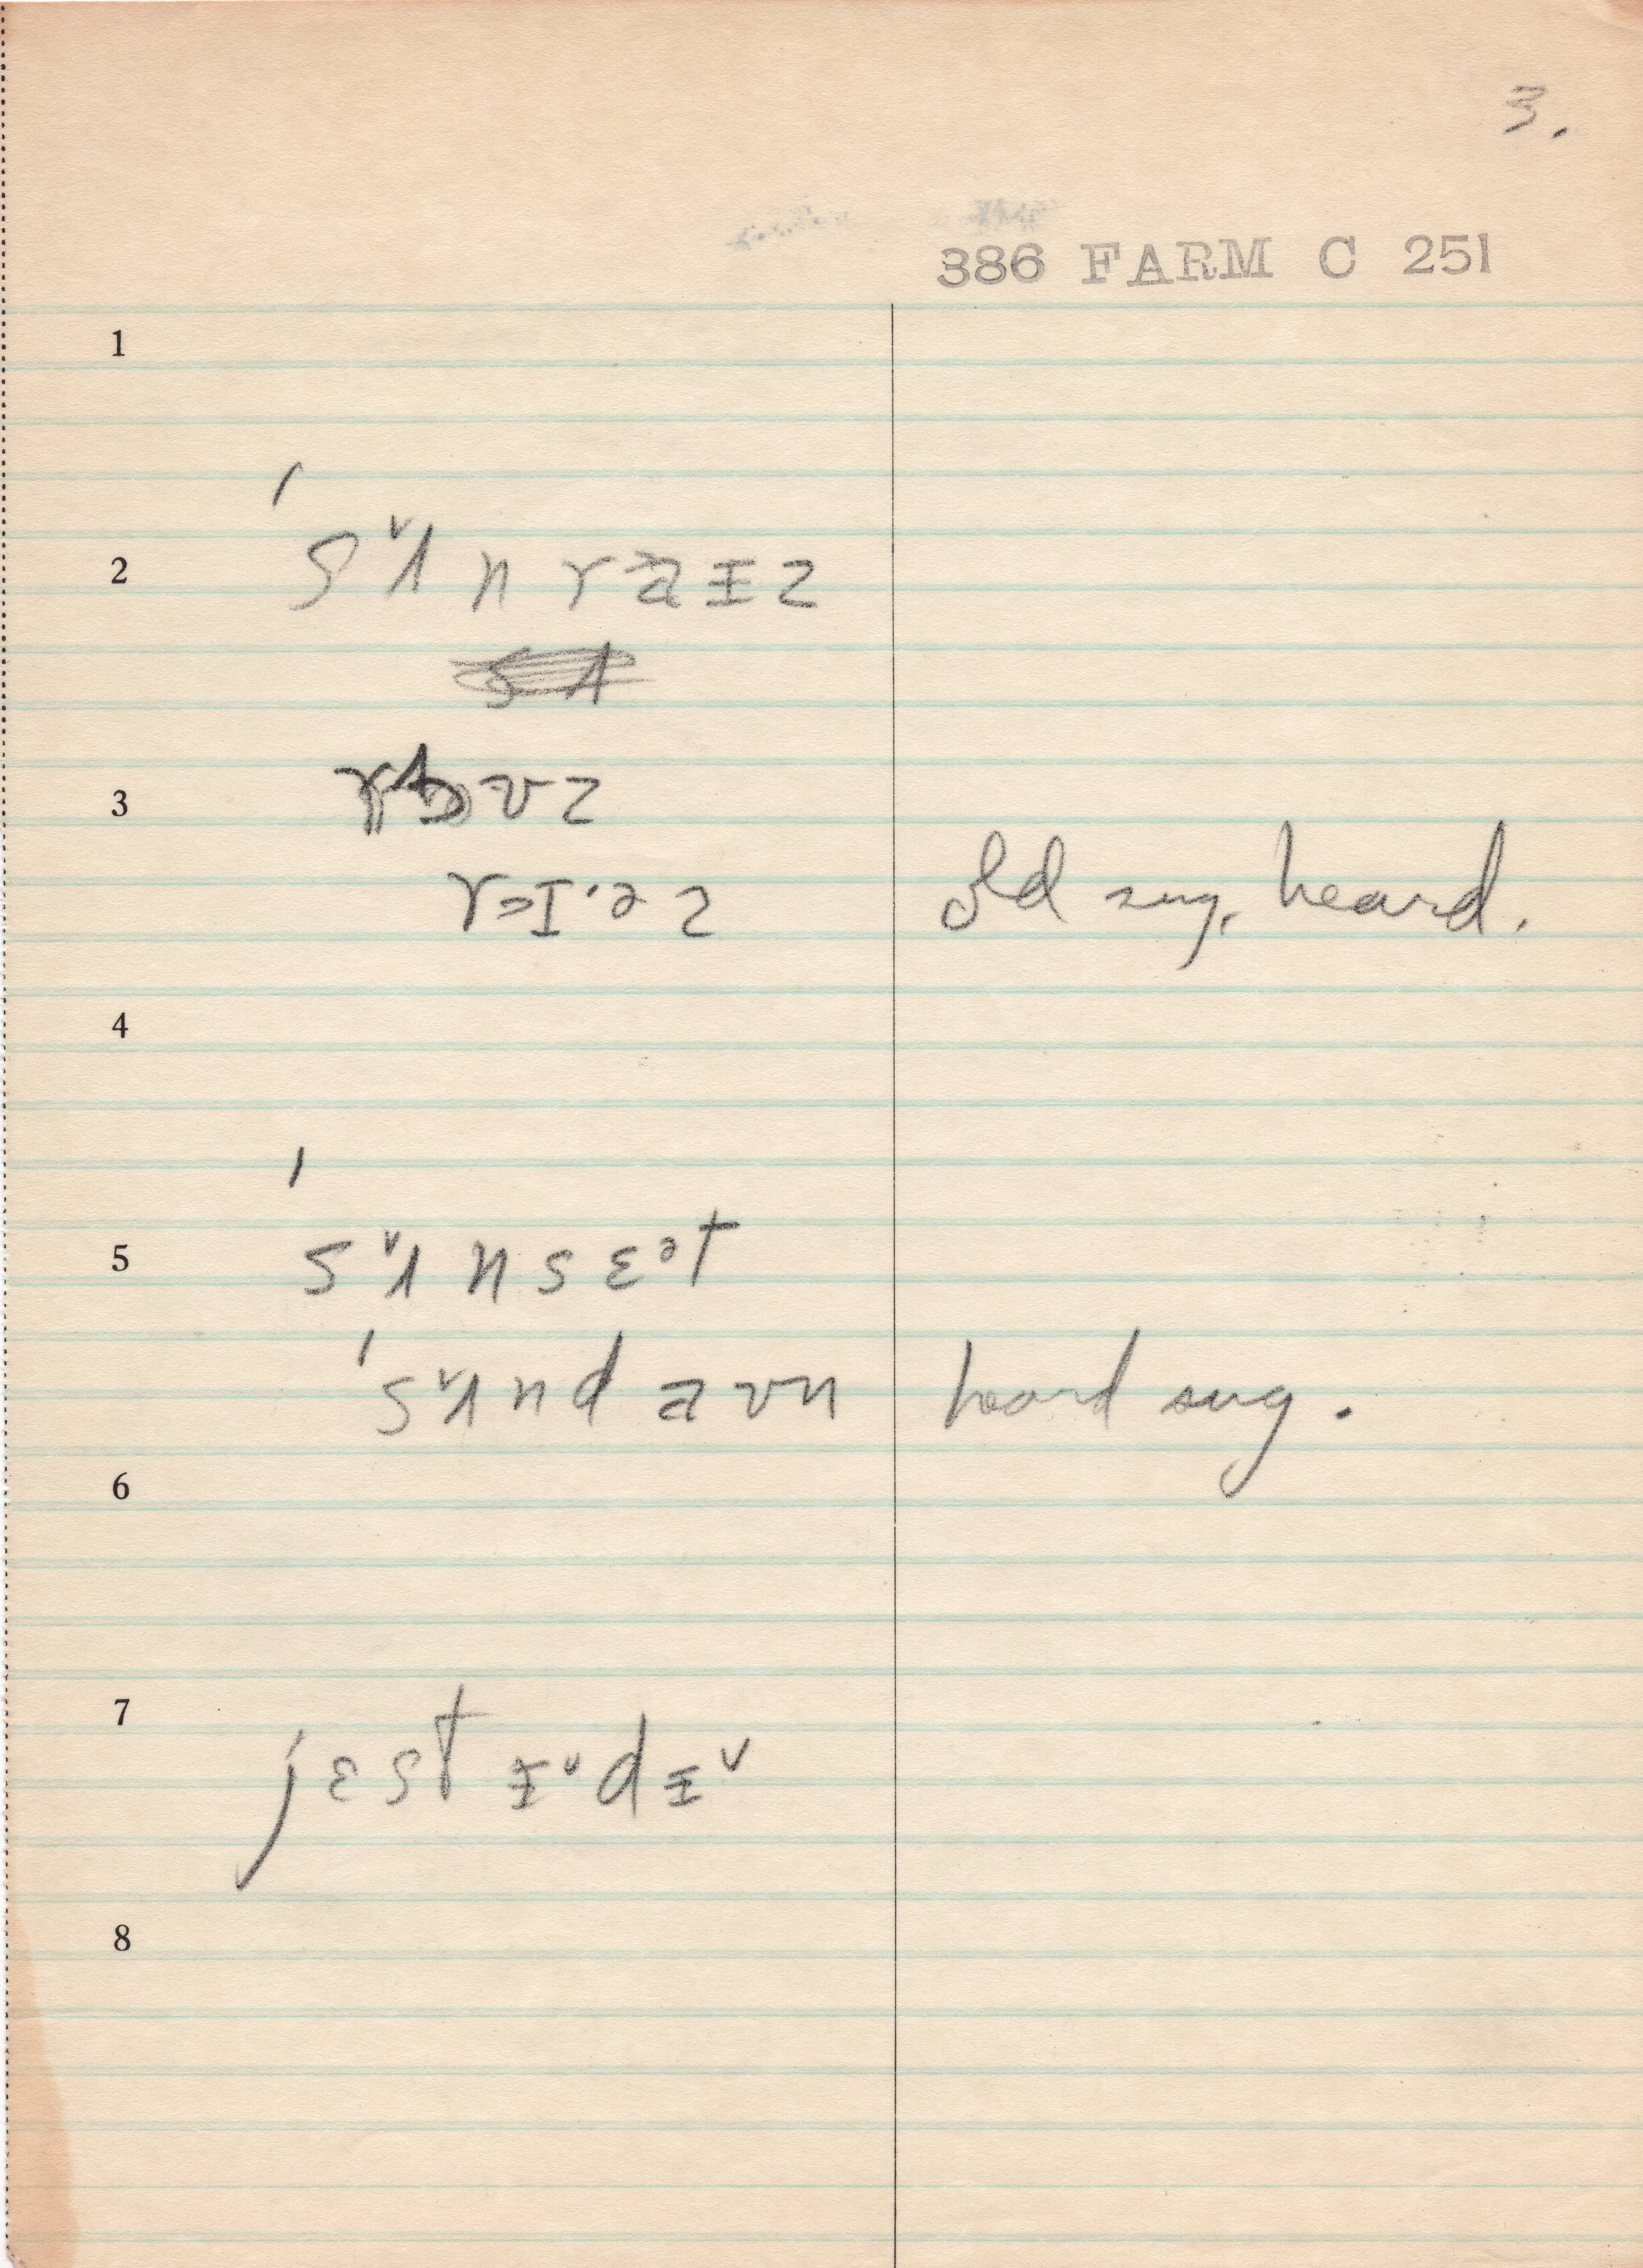 3.
386 FARM C 251
1
2 ˈsʌ̌nraɪz
3 roʊz
rɪ·əz old sug. heard.
4
5 ˈsʌ̌nsɛᵊt
ˈsʌ̌ndaʊn heard sug.
6
7 jɛstɪ̌dɪ̌
8